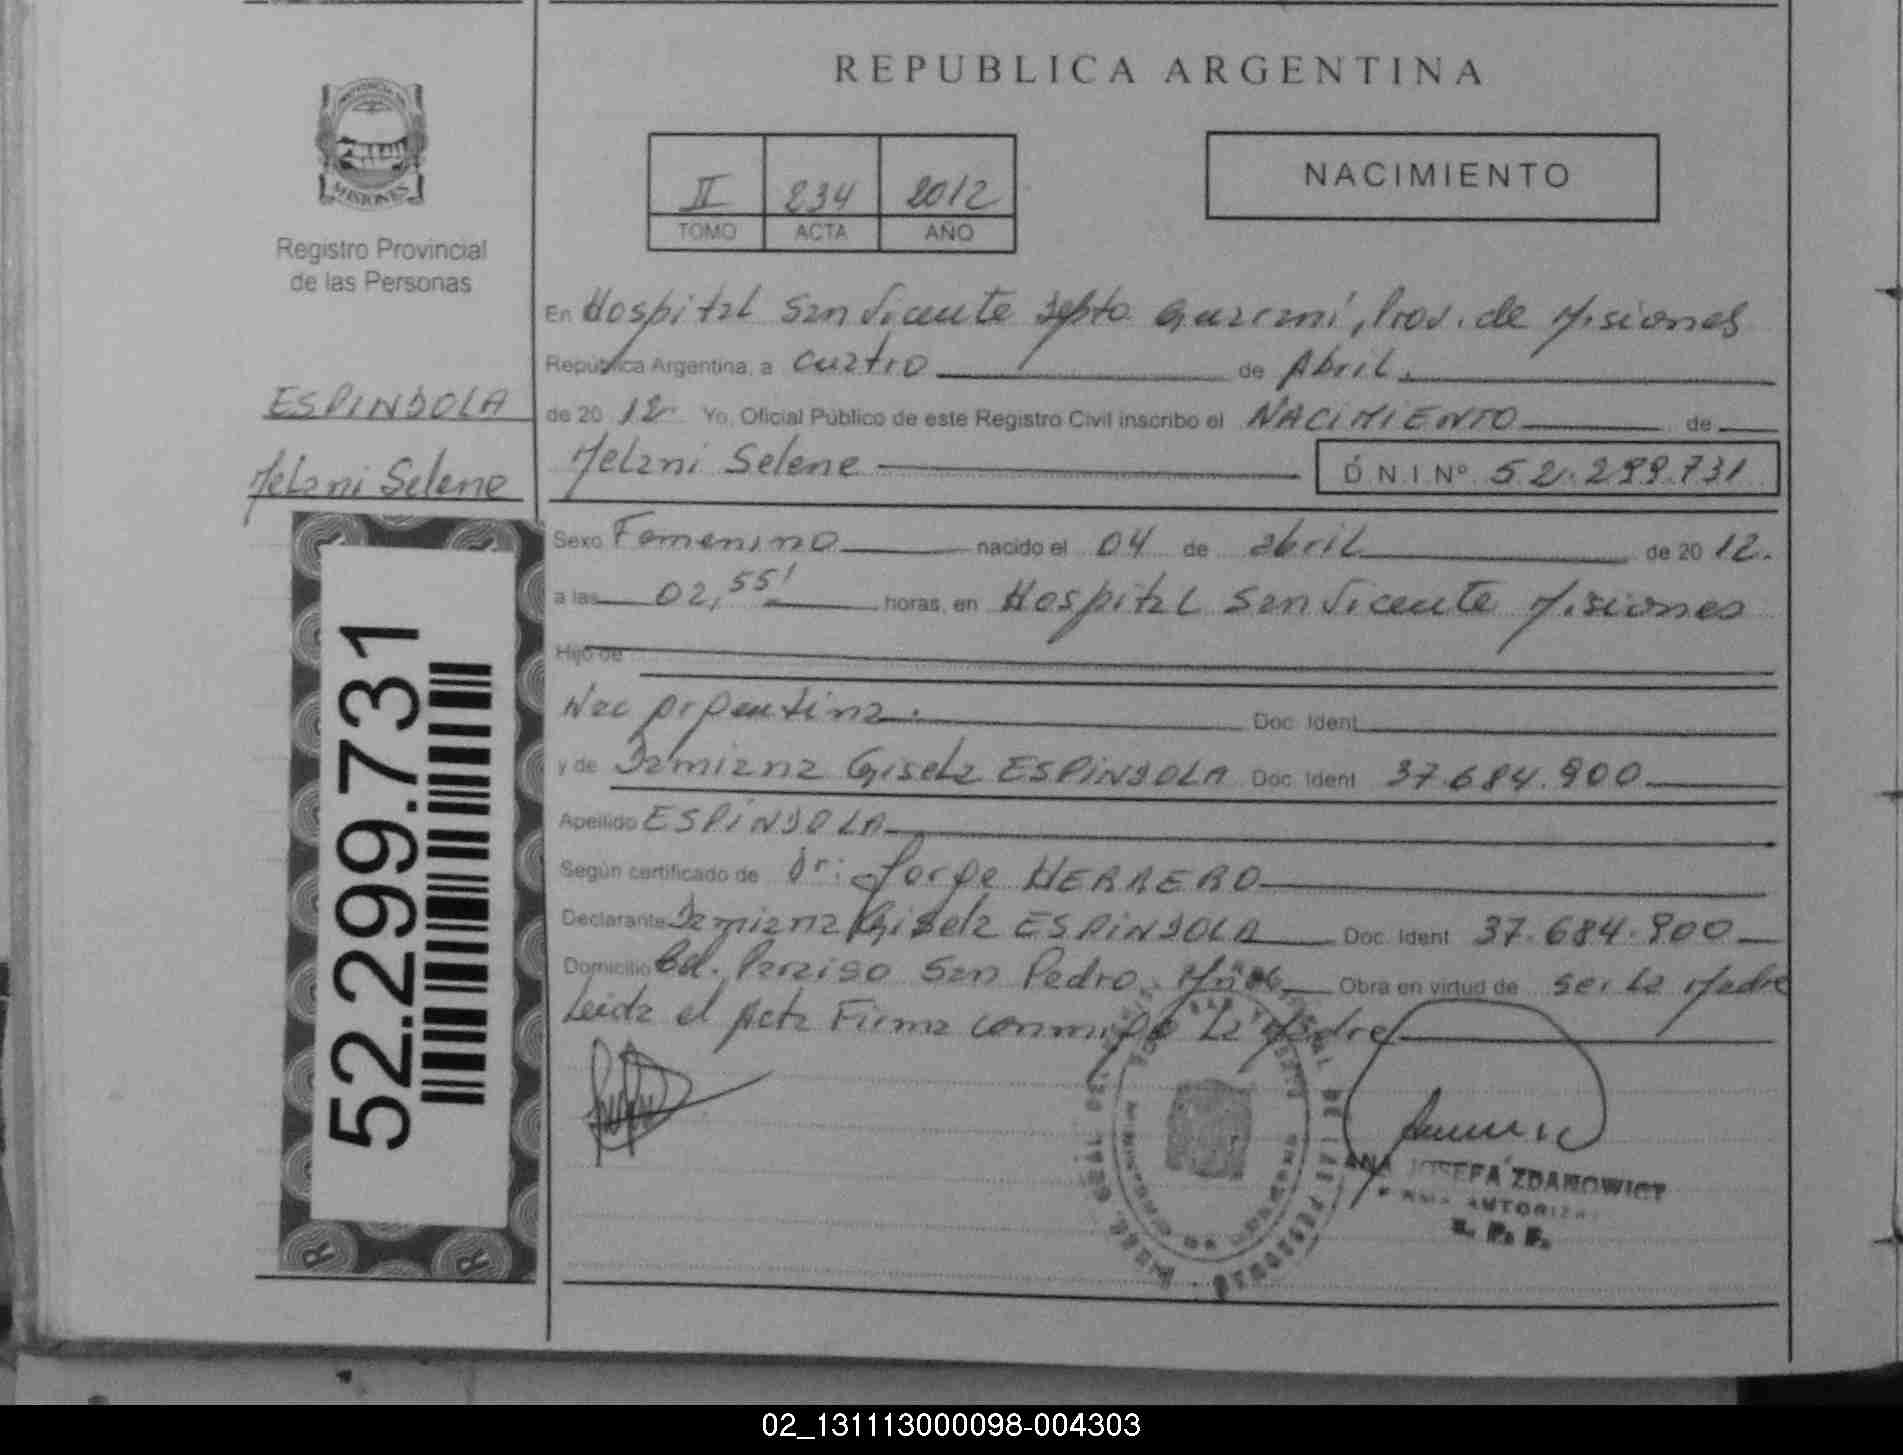 REPUBLICA ARGENTINA
II 234 2012
TOMO ACTA AÑO
NACIMIENTO
MISIONES
Registro Provincial
de las Personas
ESPINDOLA
Melani Selene
52.299.731
En Hospital San Vicente Dpto Guarani, Prov. de Misiones
República Argentina, a cuatro de Abril.
de 20 12 Yo, Oficial Público de este Registro Civil inscribo el NACIMIENTO de
Melani Selene D N I Nº 52.299.731
Sexo Femenino nacido el 04 de abril de 20 12.
a las 02,55' horas, en Hospital San Vicente Misiones
Hijo de
Nac Argentina. Doc. Ident.
y de Damiana Gisela ESPINDOLA Doc. Ident. 37.684.900
Apellido ESPINDOLA
Según certificado de Dr: Jorge HERRERO
Declarante Damiana Gisela ESPINDOLA Doc. Ident. 37.684.900
Domicilio Bd. Paraiso San Pedro, Obra en virtud de ser la Madre
Leida el Acta Firma conmigo La Madre
ANA JOSEFA ZDANOWICZ
02_131113000098-004303